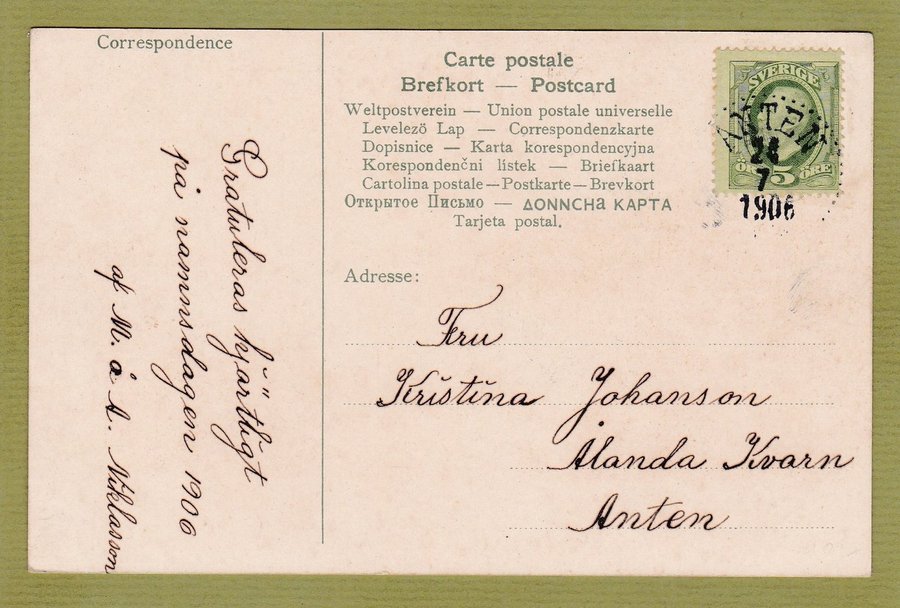 Correspondence
Carte postale
Brefkort — Postcard
Weltpostverein — Union postale universelle
Levelezö Lap — Correspondenzkarte
Dopisnice — Karta korespondencyjna
Korespondenčni listek — Briefkaart
Cartolina postale — Postkarte — Brevkort
Открытое Письмо — ΔONNCHa KAPTA
Tarjeta postal.
SVERIGE
ÖRE 5 ÖRE
ANTEN
24
7
1906
Gratuleras hjärtligt
på namnsdagen 1906
af M. å A. Niklasson
Adresse:
Fru
Kristina Johanson
Ålanda Kvarn
Anten